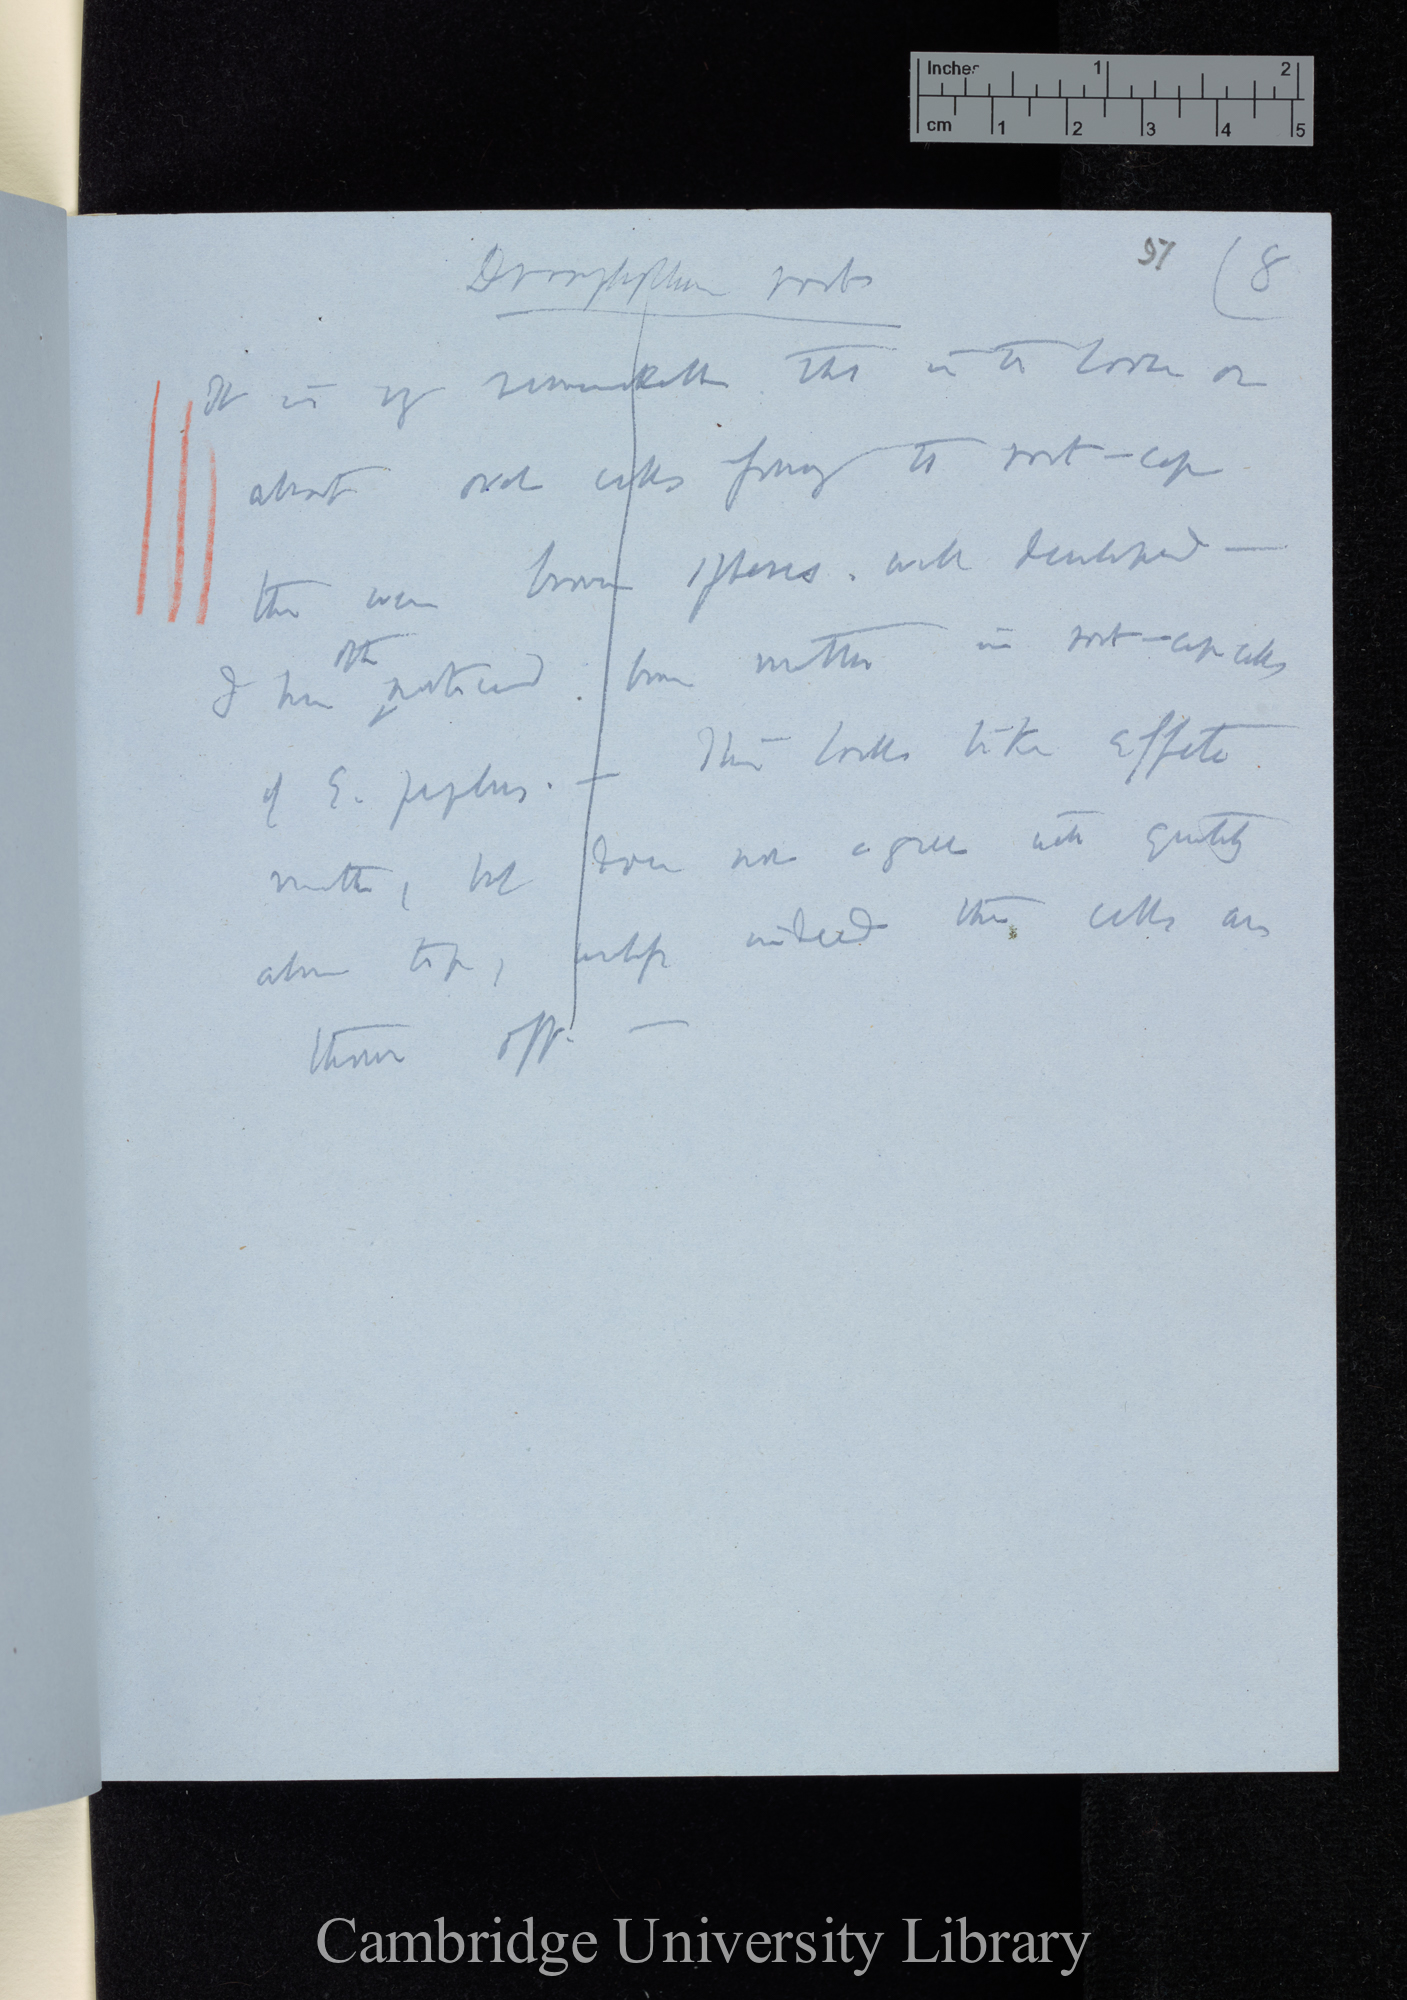 Inches 1 2
cm 1 2 3 4 5
51 (8
Drosophyllum roots
It is very remarkable that in the loose or
almost oval cells forming the root-cap
there were brown spheres. well developed —
I have often noticed brown matter in root-cap cells
of E. peplus. — This looks like effete
matter, but does not agree with quantity
above tip, unless indeed these cells are
thrown off. —
Cambridge University Library